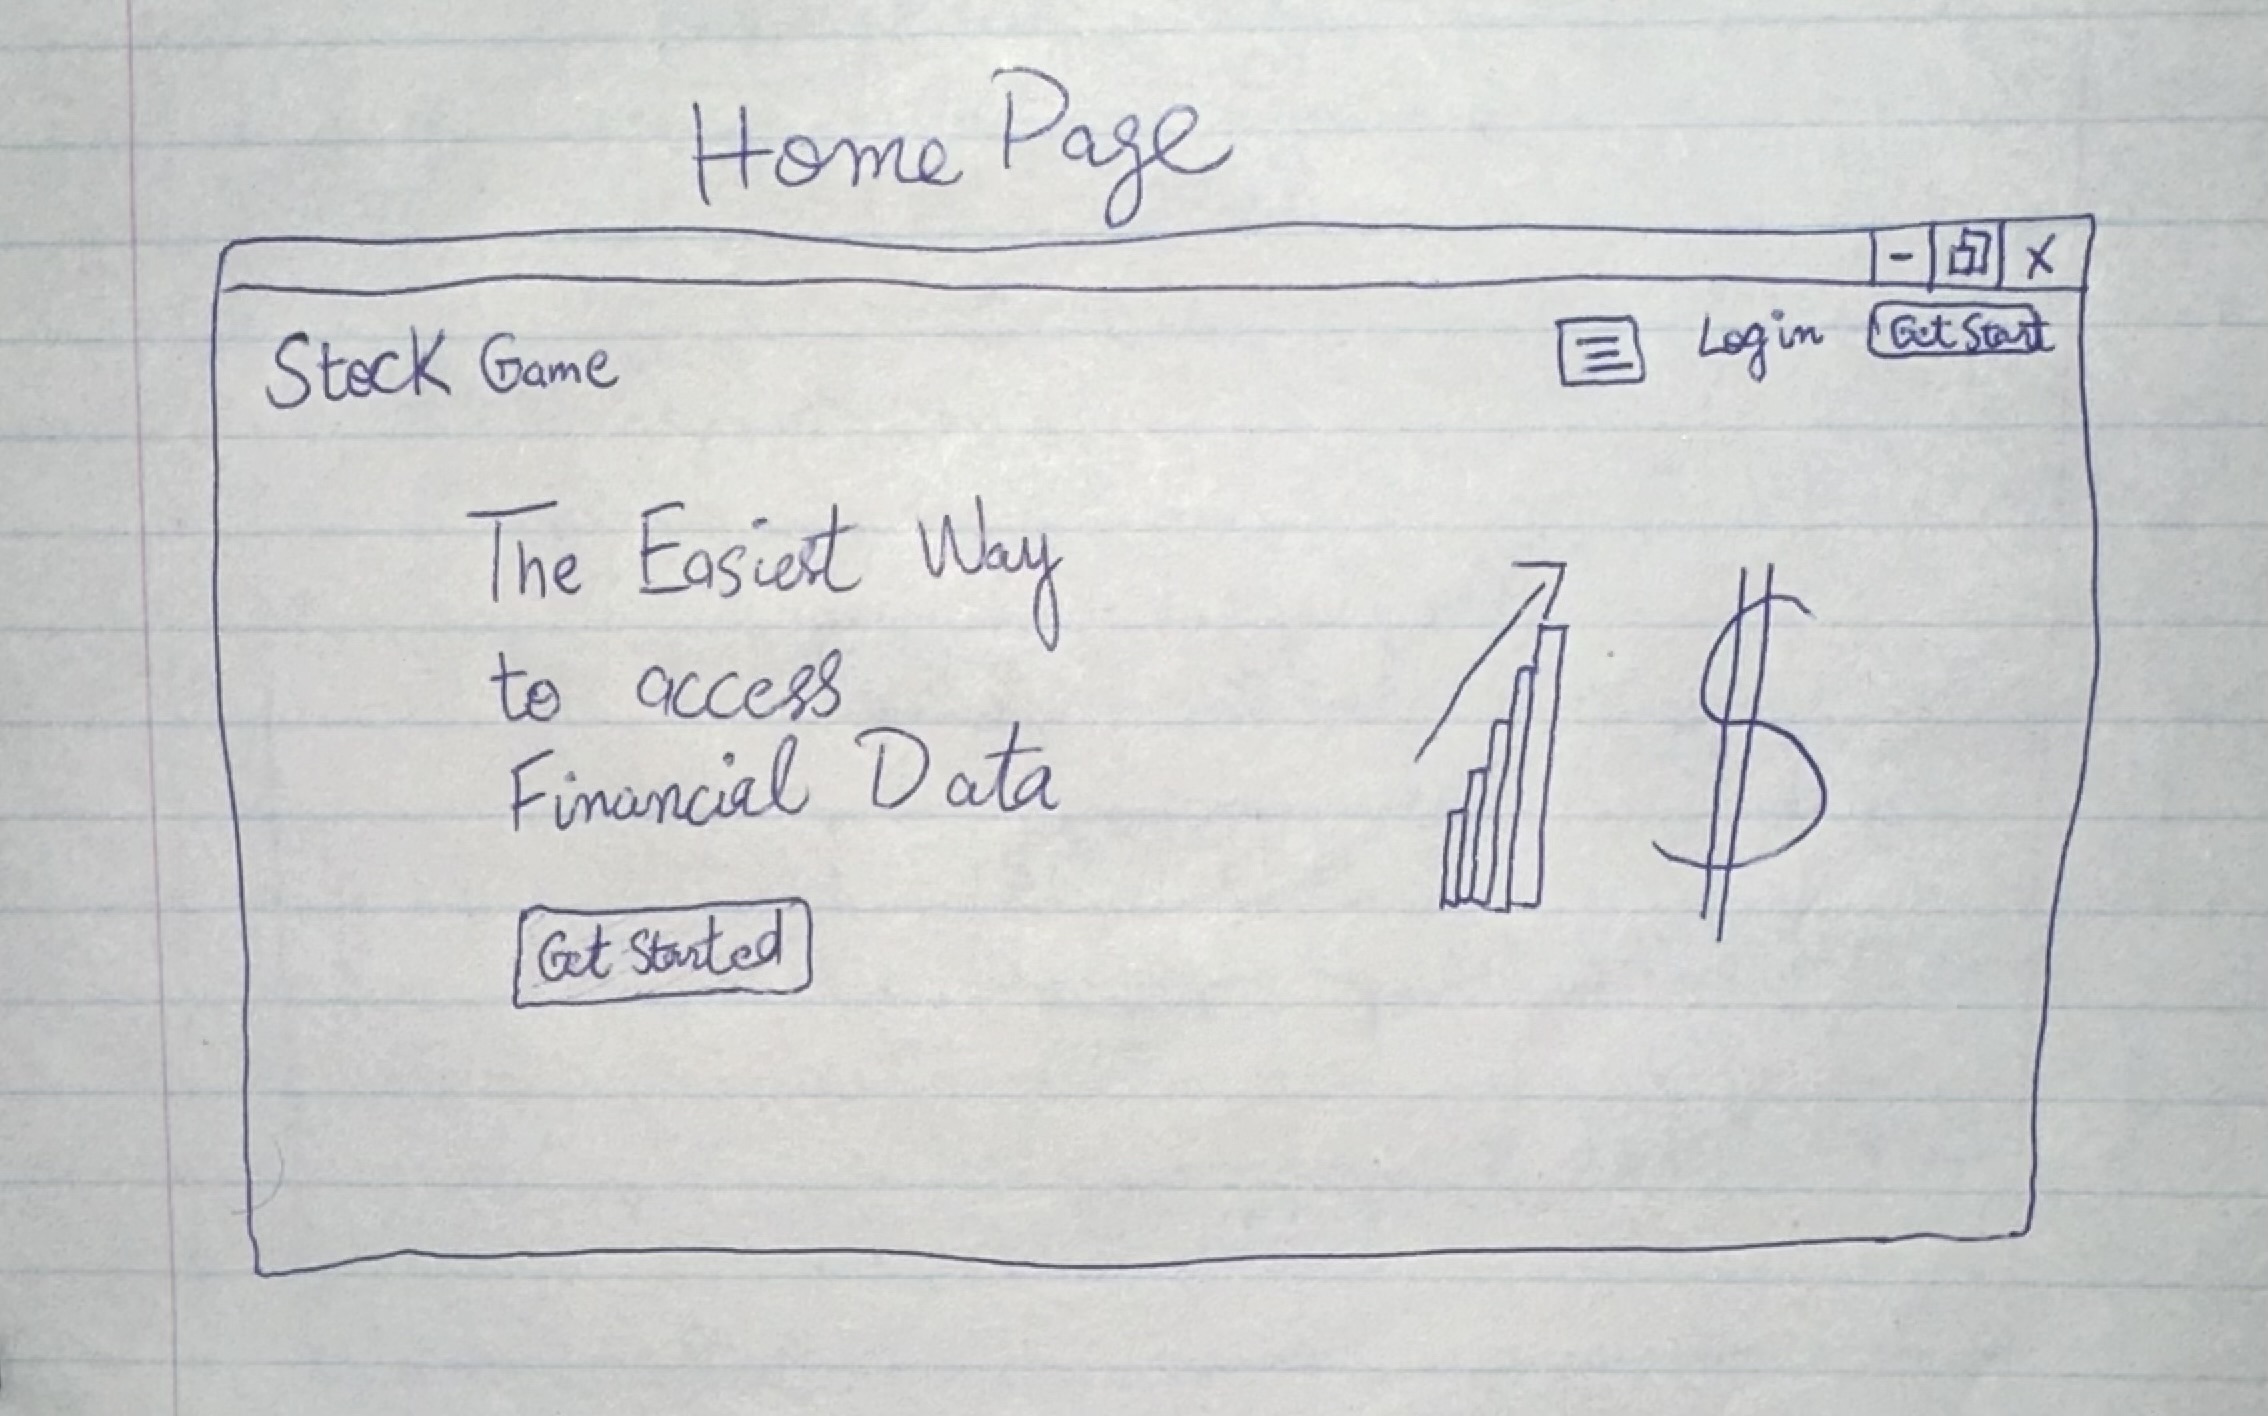 Home Page
- X
Stock Game
Login Get Start
The Easiest Way
to access
Financial Data
$
Get Started